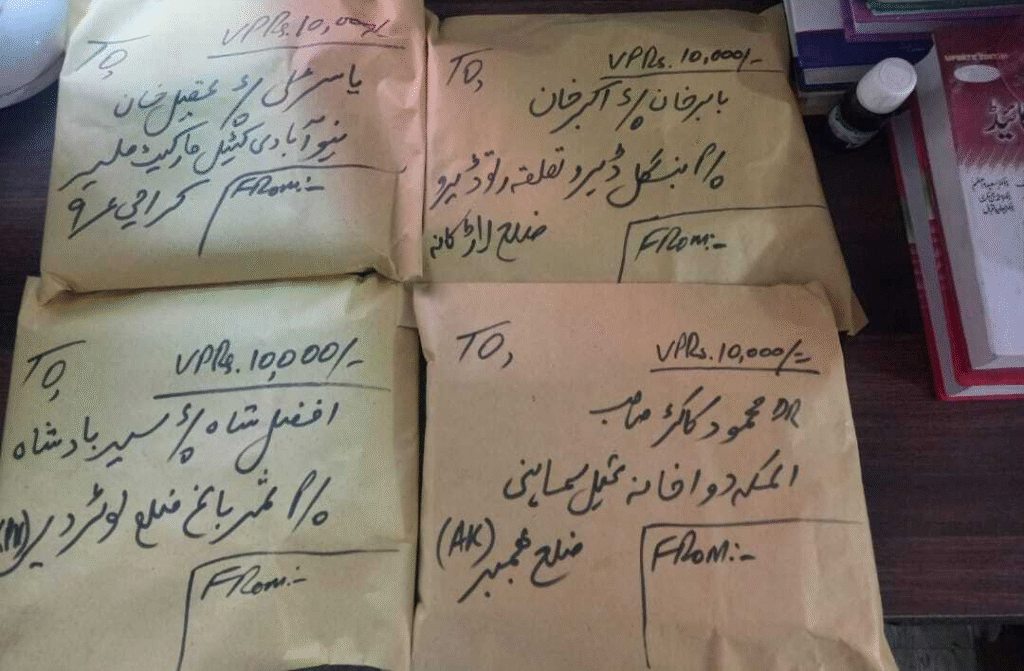 TO,
VPRs.10,000/-
یاسر علی پسر عقیل خان
نیو آبادی کیٹل مارکیٹ ملیر
کراچی
FROM:-
TO,
VPRs.10,000/-
بابر خان پسر اکبر خان
بنگل ڈیرو تعلقہ رتوڈیرو
ضلع لاڑکانہ
FROM:-
TO,
VPRs.10,000/-
افضل شاہ پسر سید بادشاہ
ثمر باغ ضلع لوئر دیر
FROM:-
TO,
VPRs.10,000/-
DR محمود صاحب
المکہ دواخانہ سماہنی
ضلع بھمبر (AK)
FROM:-